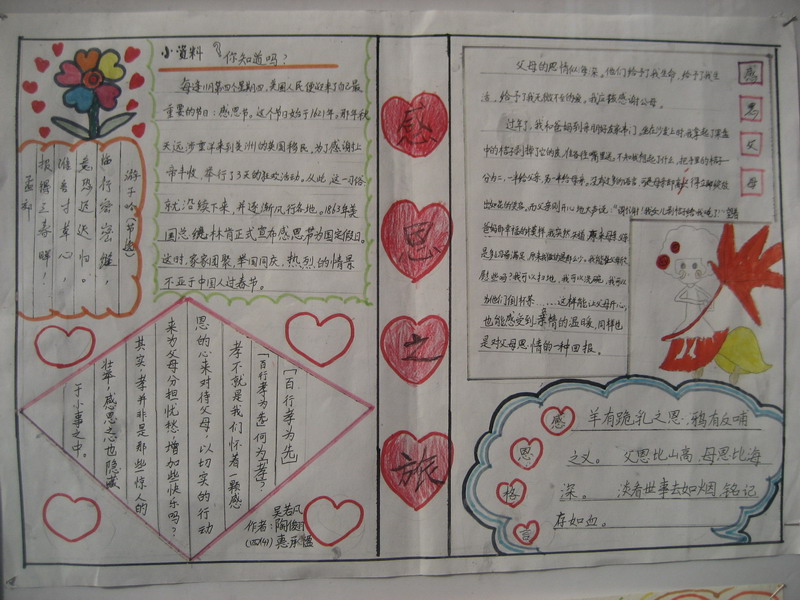 小资料
你知道吗？
每逢11月第四个星期四，美国人民便迎来了自己最
重要的节日：感恩节。这个节日始于1621年。那年秋
天远涉重洋来到美洲的英国移民，为了感谢上
帝丰收，举行了3天的狂欢活动。从此，这一习俗
就沿续下来，并逐渐风行各地。1863年美
国总统林肯正式宣布感恩节为国定假日。
这时，家家团聚，举国同庆，热烈的情景
不亚于中国人过春节。
游子吟（节选）
临行密密缝，
意恐迟迟归。
谁言寸草心，
报得三春晖！
孟郊
「百行孝为先」
「百行孝为先」何为「孝」？
孝不就是我们怀着一颗感
恩的心来对待父母，以切实的行动
来为父母分担忧愁，增加些快乐吗？
其实，孝并非是那些惊人的
壮举，感恩之心也隐藏
于小事之中。
作者：
(四(4))
感
恩
之
旅
感
恩
父
母
父母的恩情似海深。他们给予了我生命，给予了我生
活，给予了我无微不至的爱，我应该感谢父母。
过年了，我和爸妈到
中的桔子
分为二，一半给父亲，另一半给母亲。
出如花的笑容。而父亲则开心地大声说：
爸妈那幸福的模样，我突然
那些吗？我可以扫地，我可以洗碗，我可以
为他们倒杯茶……这样能让父母开心，
也能感受到亲情的温暖，同样也
是对父母恩情的一种回报。
感
恩
格
言
羊有跪乳之恩，鸦有反哺
之义。 父恩比山高，母恩比海
深。 淡看世事去如烟，铭记
存如血。